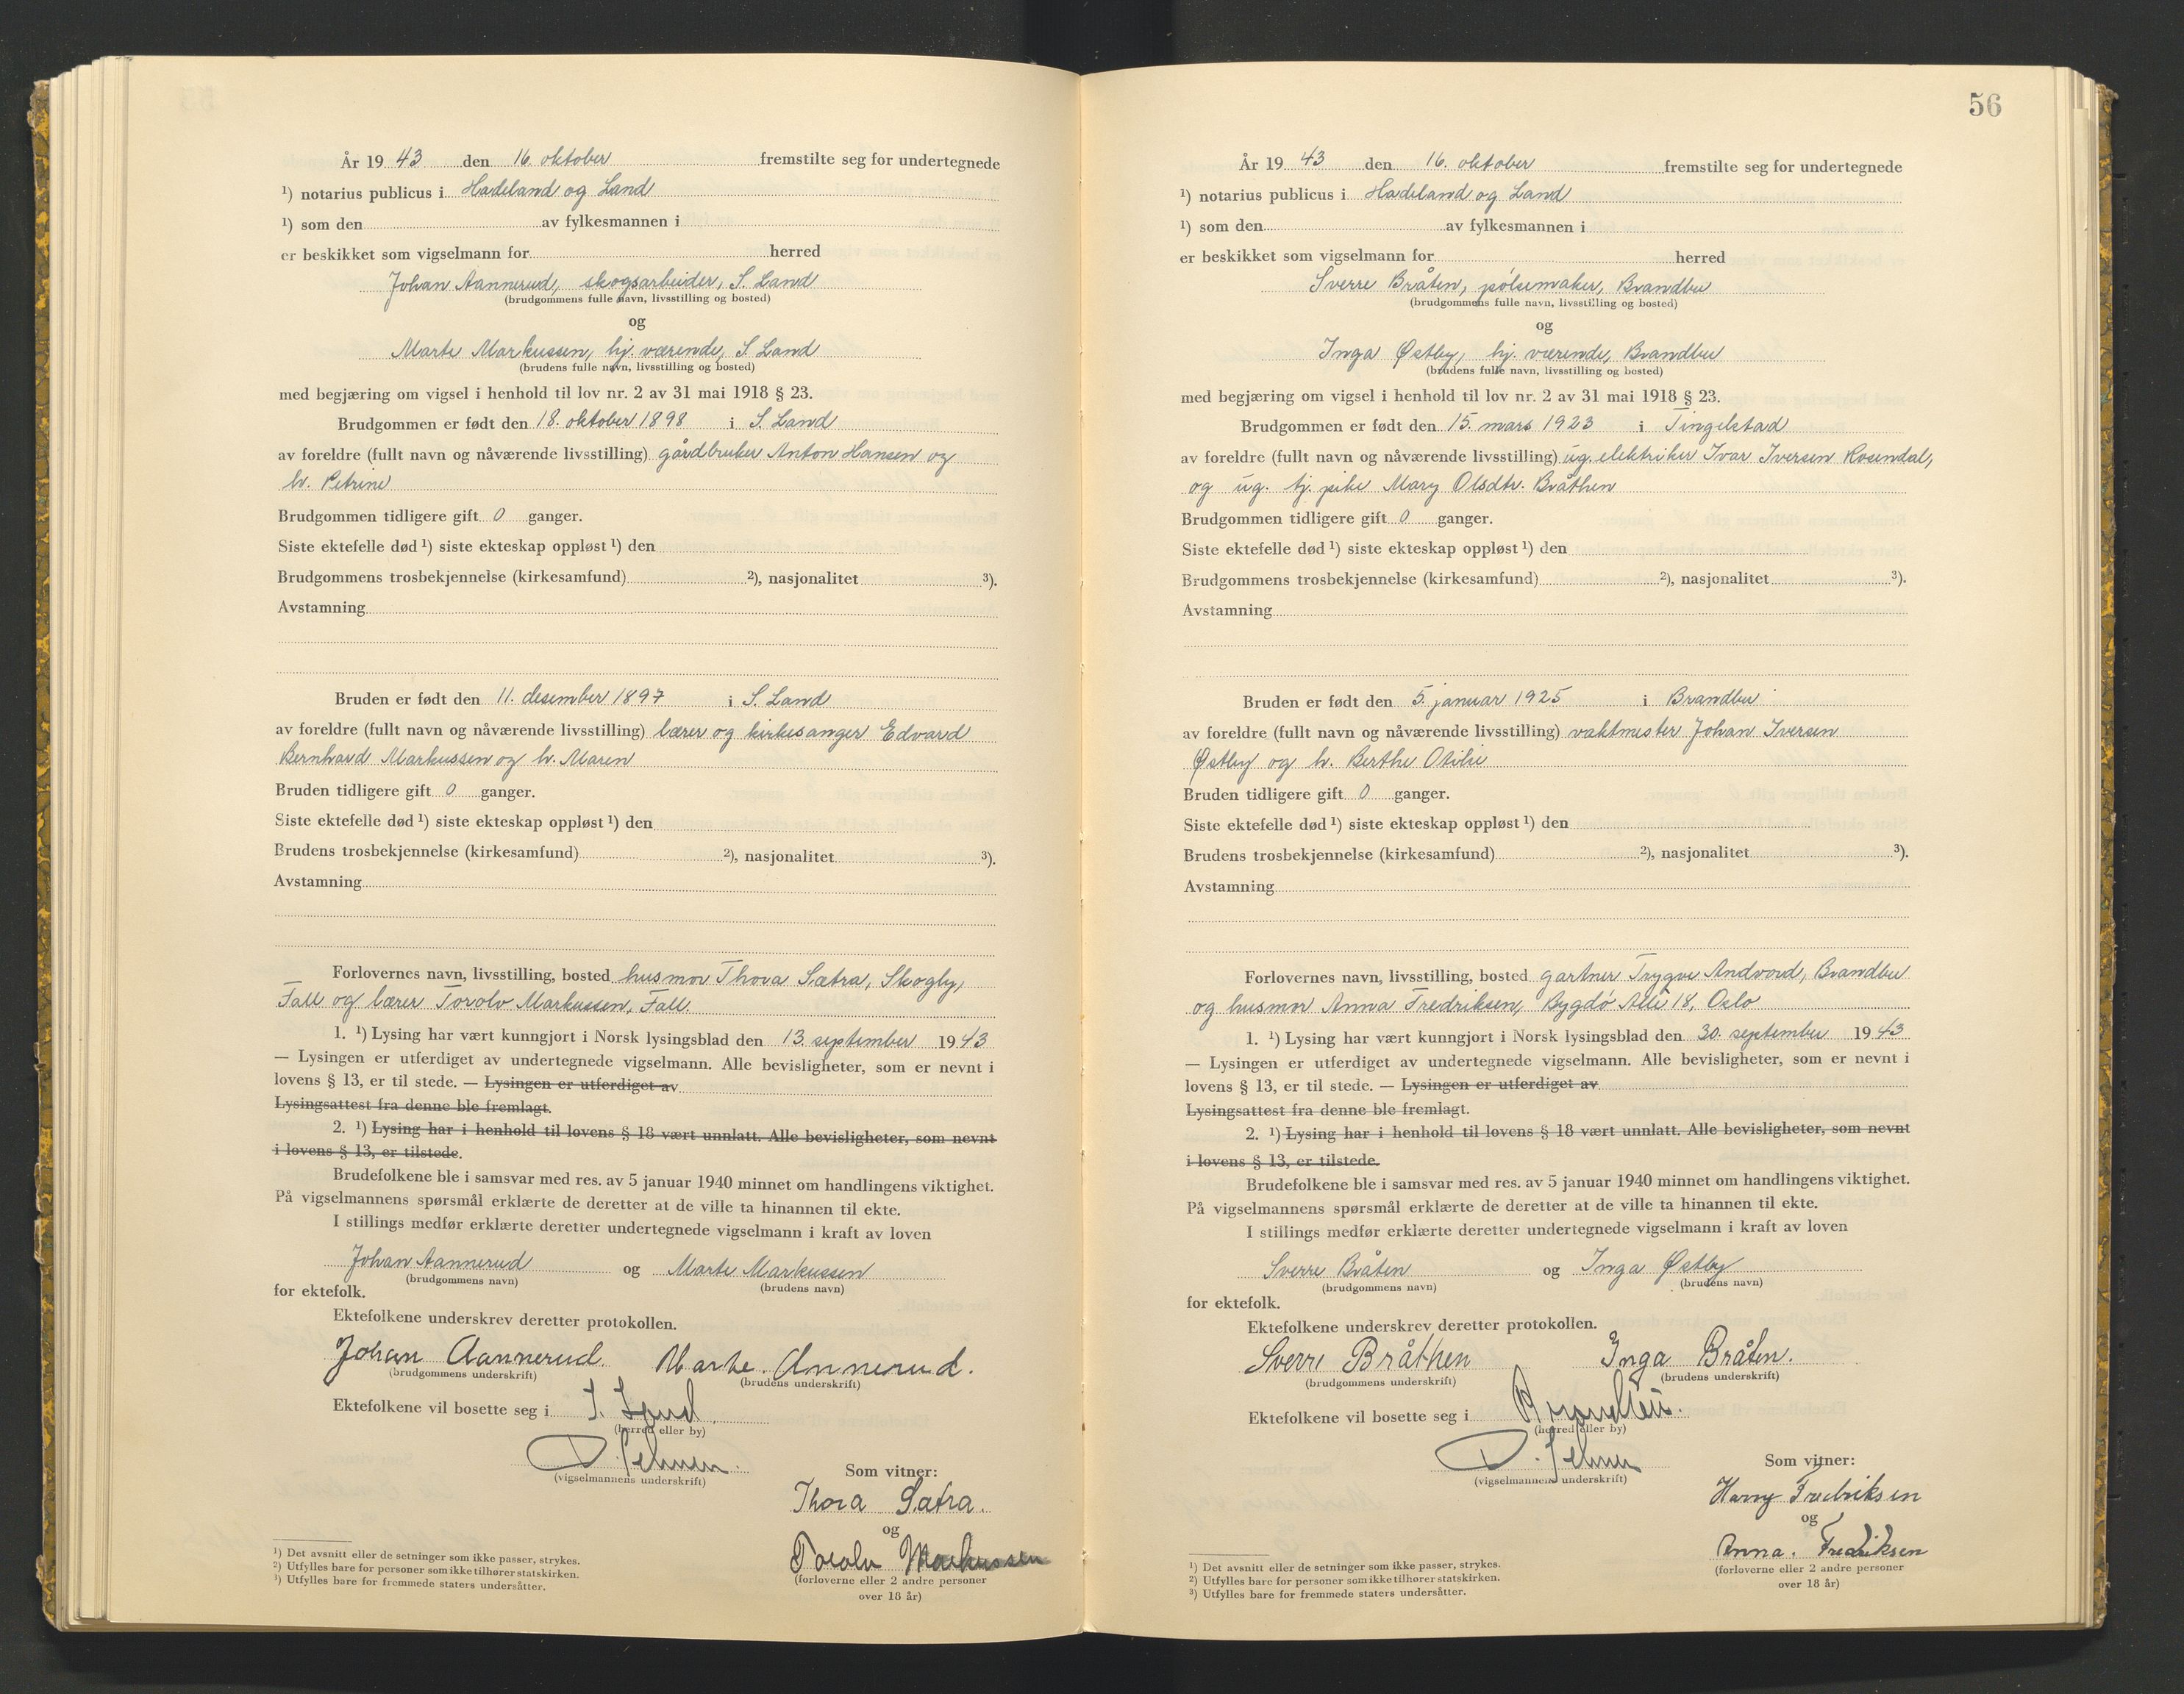 År 19 43 den 16. oktober fremstilte seg for undertegnede
¹) notarius publicus i Hadeland og Land
¹) som den av fylkesmannen i
er beskikket som vigselmann for herred
Johan Aannerud, skogsarbeider, S. Land
(brudgommens fulle navn, livsstilling og bosted)
og
Marte Markussen, hj. værende, S. Land
(brudens fulle navn, livsstilling og bosted)
med begjæring om vigsel i henhold til lov nr. 2 av 31 mai 1918 § 23.
Brudgommen er født den 18. oktober 1898 i S. Land
av foreldre (fullt navn og nåværende livsstilling) gårdbruker Anton Hansen og
h. Petrine
Brudgommen tidligere gift 0 ganger.
Siste ektefelle død ¹) siste ekteskap oppløst ¹) den
Brudgommens trosbekjennelse (kirkesamfund) ²), nasjonalitet ³).
Avstamning
Bruden er født den 11. desember 1897 i S. Land
av foreldre (fullt navn og nåværende livsstilling) lærer og kirkesanger Edvard
Bernhard Markussen og h. Maren
Bruden tidligere gift 0 ganger.
Siste ektefelle død ¹) siste ekteskap oppløst ¹) den
Brudens trosbekjennelse (kirkesamfund) ²), nasjonalitet ³).
Avstamning
Forlovernes navn, livsstilling, bosted husmor Thora Sætra, Skogly,
Fall og lærer Torolv Markussen, Fall.
1. ¹) Lysing har vært kunngjort i Norsk lysingsblad den 13. september 19 43
— Lysingen er utferdiget av undertegnede vigselmann. Alle bevisligheter, som er nevnt i
lovens § 13, er til stede. — Lysingen er utferdiget av
Lysingsattest fra denne ble fremlagt.
2. ¹) Lysing har i henhold til lovens § 18 vært unnlatt. Alle bevisligheter, som nevnt
i lovens § 13, er tilstede.
Brudefolkene ble i samsvar med res. av 5 januar 1940 minnet om handlingens viktighet.
På vigselmannens spørsmål erklærte de deretter at de ville ta hinannen til ekte.
I stillings medfør erklærte deretter undertegnede vigselmann i kraft av loven
Johan Aannerud og Marte Markussen
(brudgommens navn) (brudens navn)
for ektefolk.
Ektefolkene underskrev deretter protokollen.
Johan Aannerud. Marte. Annerud.
(brudgommens underskrift) (brudens underskrift)
Ektefolkene vil bosette seg i S. Land
(herred eller by)
(vigselmannens underskrift)
Som vitner:
Thora Sætra.
og
Torolv Markussen
(forloverne eller 2 andre personer
over 18 år)
¹) Det avsnitt eller de setninger som ikke passer, strykes.
²) Utfylles bare for personer som ikke tilhører statskirken.
³) Utfylles bare for fremmede staters undersåtter.
56
År 19 43 den 16. oktober fremstilte seg for undertegnede
¹) notarius publicus i Hadeland og Land
¹) som den av fylkesmannen i
er beskikket som vigselmann for herred
Sverre Bråten, pølsemaker, Brandbu
(brudgommens fulle navn, livsstilling og bosted)
og
Inga Østby, hj. værende, Brandbu
(brudens fulle navn, livsstilling og bosted)
med begjæring om vigsel i henhold til lov nr. 2 av 31 mai 1918 § 23.
Brudgommen er født den 15. mars 1923 i Tingelstad
av foreldre (fullt navn og nåværende livsstilling) ug. elektriker Ivar Iversen Rosendal,
og ug. tj. pike Mary Olsdtr. Bråthen
Brudgommen tidligere gift 0 ganger.
Siste ektefelle død ¹) siste ekteskap oppløst ¹) den
Brudgommens trosbekjennelse (kirkesamfund) ²), nasjonalitet ³).
Avstamning
Bruden er født den 5. januar 1925 i Brandbu
av foreldre (fullt navn og nåværende livsstilling) vaktmester Johan Iversen
Østby og h. Berthe Otilie
Bruden tidligere gift 0 ganger.
Siste ektefelle død ¹) siste ekteskap oppløst ¹) den
Brudens trosbekjennelse (kirkesamfund) ²), nasjonalitet ³).
Avstamning
Forlovernes navn, livsstilling, bosted gartner Trygve Andvord, Brandbu
og husmor Anna Fredriksen, Bygdø Allé 18, Oslo
1. ¹) Lysing har vært kunngjort i Norsk lysingsblad den 30. september 19 43
— Lysingen er utferdiget av undertegnede vigselmann. Alle bevisligheter, som er nevnt i
lovens § 13, er til stede. — Lysingen er utferdiget av
Lysingsattest fra denne ble fremlagt.
2. ¹) Lysing har i henhold til lovens § 18 vært unnlatt. Alle bevisligheter, som nevnt
i lovens § 13, er tilstede.
Brudefolkene ble i samsvar med res. av 5 januar 1940 minnet om handlingens viktighet.
På vigselmannens spørsmål erklærte de deretter at de ville ta hinannen til ekte.
I stillings medfør erklærte deretter undertegnede vigselmann i kraft av loven
Sverre Bråten og Inga Østby
(brudgommens navn) (brudens navn)
for ektefolk.
Ektefolkene underskrev deretter protokollen.
Sverre Bråthen Inga Bråten.
(brudgommens underskrift) (brudens underskrift)
Ektefolkene vil bosette seg i Brandbu.
(herred eller by)
(vigselmannens underskrift)
Som vitner:
Harry Fredriksen
og
Anna. Fredriksen
(forloverne eller 2 andre personer
over 18 år)
¹) Det avsnitt eller de setninger som ikke passer, strykes.
²) Utfylles bare for personer som ikke tilhører statskirken.
³) Utfylles bare for fremmede staters undersåtter.